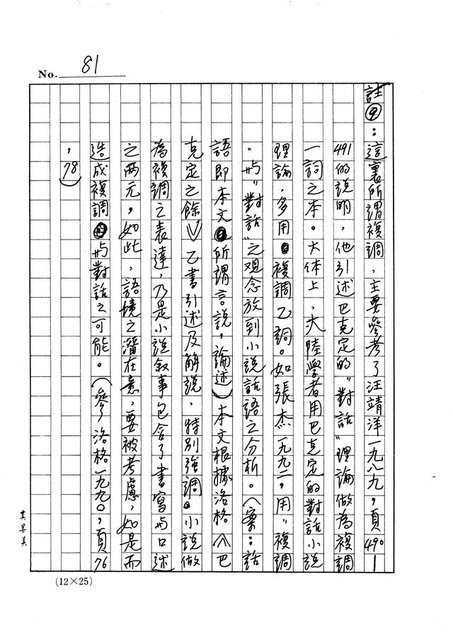 No. 81
註④：這裏所謂複調，主要參考了汪靖洋一九八九，頁490—
491的說明，他引述巴克定的"對話"理論做為複調
一詞之本。大体上，大陸學者用巴克定的對話小說
理論，多用複調乙詞。如張杰一九九二，用"複調
"與"對話"之观念放到小說話語之分析。（案：話
語即本文所謂言說，論述）本文根據洛格（八巴
克定之餘∨乙書引述及解說，特別強調小說做
為複調之表達，乃是小說敘事包含了書寫與口述
之两元，如此，語境之潛在意，要被考慮，如是而
造成複調與對話之可能。（參洛格一九九〇，頁76
，78）
(12×25)